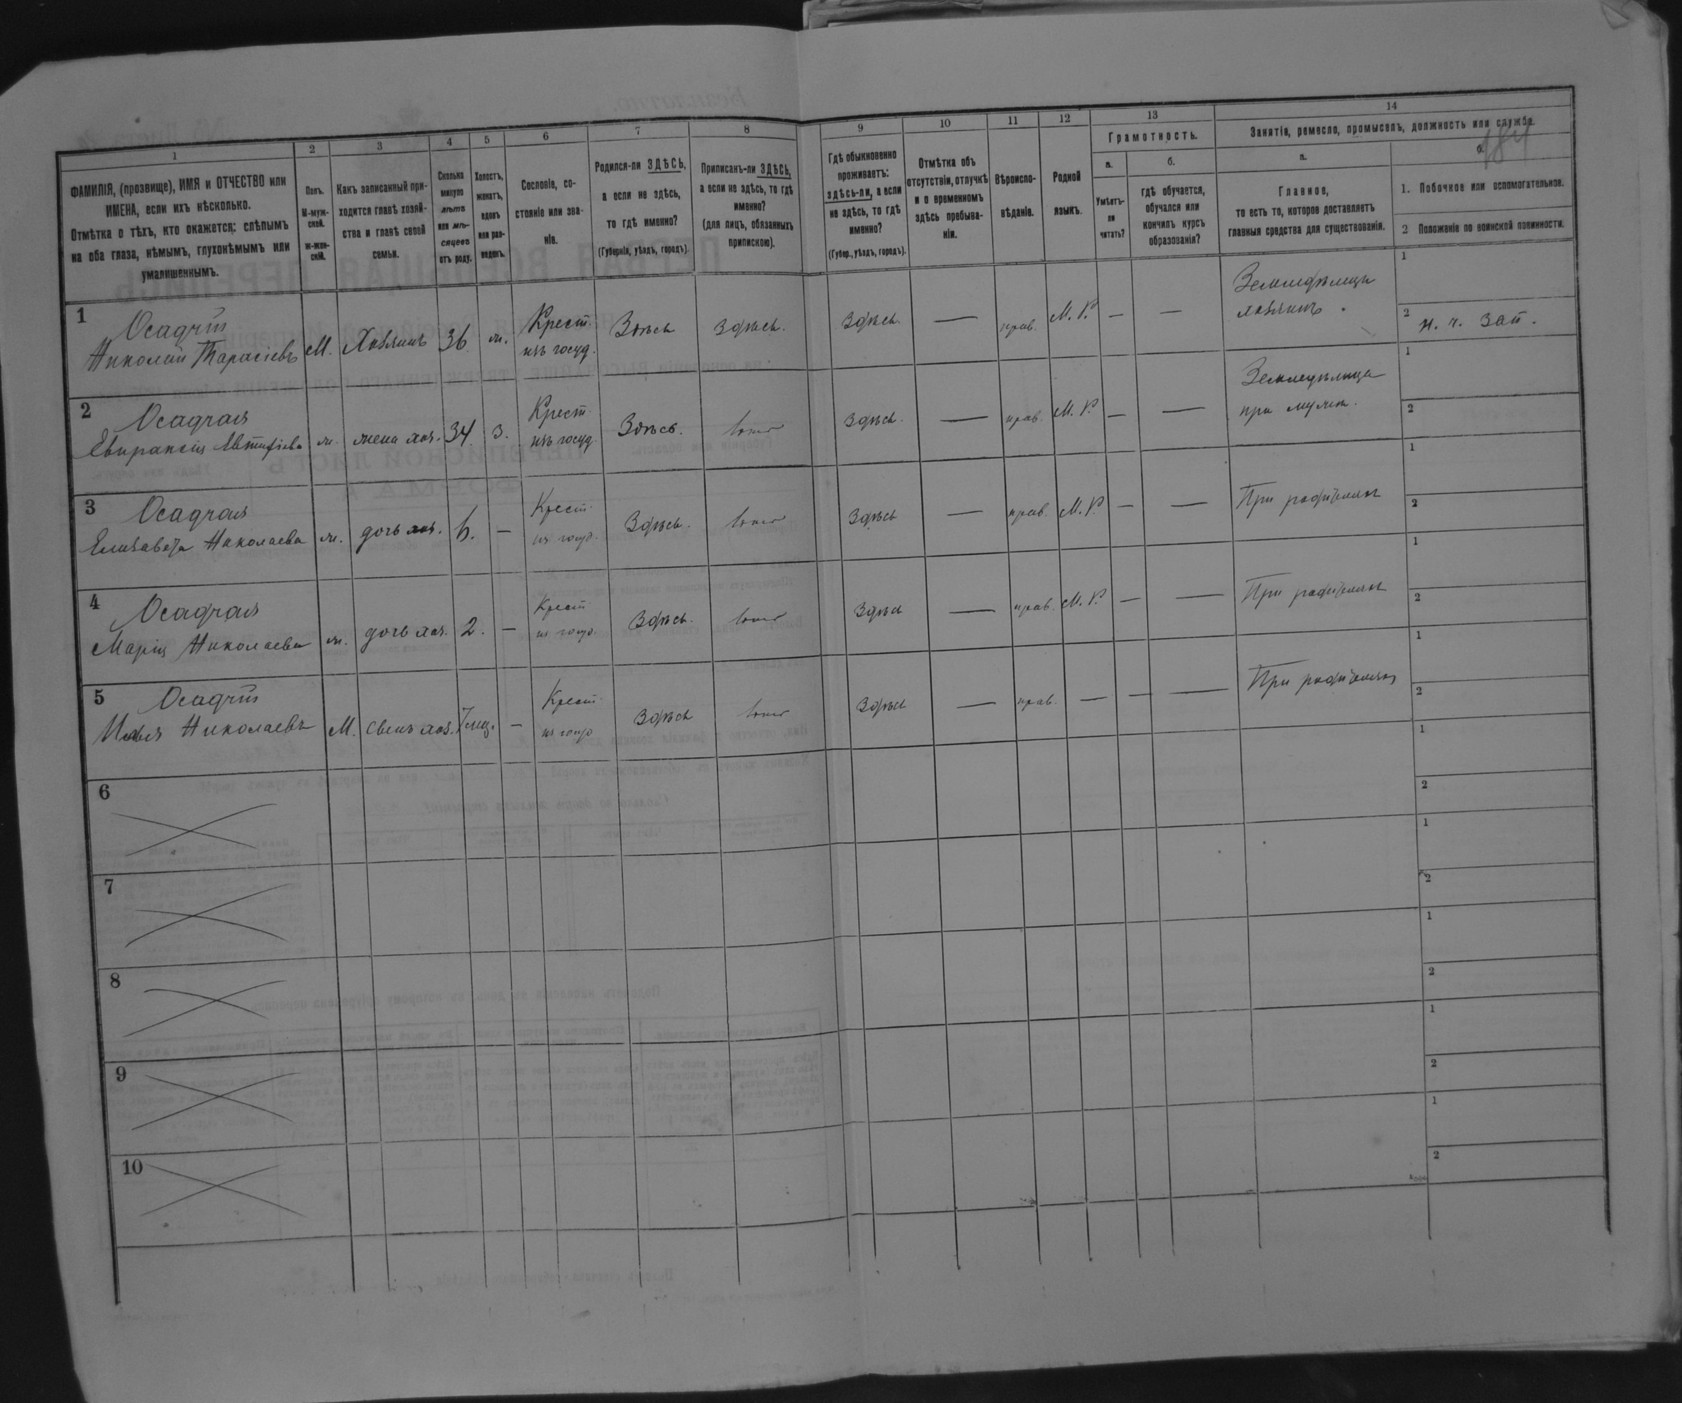 1
ФАМИЛІЯ, (прозвище), ИМЯ и ОТЧЕСТВО или
ИМЕНА, если ихъ нѣсколько.
Отмѣтка о тѣхъ, кто окажется: слѣпымъ
на оба глаза, нѣмымъ, глухонѣмымъ или
умалишеннымъ.
2
Полъ.
М-муж-
ской.
ж-жен-
скій.
3
Какъ записанный при-
ходится главѣ хозяй-
ства и главѣ своей
семьи.
4
Сколько
минуло
лѣтъ
или мѣ-
сяцевъ
отъ роду.
5
Холостъ,
женатъ,
вдовъ
или раз-
веденъ.
6
Сословіе, со-
стояніе или зва-
ніе.
7
Родился-ли ЗДѢСЬ,
а если не здѣсь,
то гдѣ именно?
(Губернія, уѣздъ, городъ).
8
Приписанъ-ли ЗДѢСЬ,
а если не здѣсь, то гдѣ
именно?
(для лицъ, обязанныхъ
припискою).
9
Гдѣ обыкновенно
проживаетъ:
здѣсь-ли, а если
не здѣсь, то гдѣ
именно?
(Губер., уѣздъ, городъ).
10
Отмѣтка объ
отсутствіи, отлучкѣ
и о временномъ
здѣсь пребыва-
ніи.
11
Вѣроиспо-
вѣданіе.
12
Родной
языкъ.
13
Грамотность.
а.
Умѣетъ-
ли
читать?
б.
гдѣ обучается,
обучался или
кончилъ курсъ
образованія?
14
Занятія, ремесло, промыселъ, должность или служба.
а.
Главное,
то есть то, которое доставляетъ
главныя средства для существованія.
1. Побочное или вспомогательное.
2 Положеніе по воинской повинности.
184
1
Осадчій
Николай Тарасіевъ М. Хозяинъ 36 ж. Крест. изъ госуд. Здѣсь Здѣсь. Здѣсь. — прав. М. Р. — — Земледѣлецъ
хозяинъ.
1
2 н. ч. зап.
2
Осадчая
ж. жена хоз. 34 з. Крест. изъ госуд. Здѣсь. тоже Здѣсь. — прав. М. Р. — — Земледѣлица
при мужѣ.
1
2
3
Осадчая
Елизавета Николаева ж. дочь хоз. 6. — Крест. из госуд. Здѣсь. тоже Здѣсь — прав. М. Р. — — При родителях
1
2
4
Осадчая
Марія Николаева ж. дочь хоз. 2. — Крест. из госуд. Здѣсь. тоже Здѣсь — прав. М. Р. — — При родителях
1
2
5
Осадчій
Николаевъ М. сынъ хоз. 7 мц. — Крест. из госуд Здѣсь тоже Здѣсь — прав. — — — При родителях
1
2
6
1
2
7
1
2
8
1
2
9
1
2
10
1
2